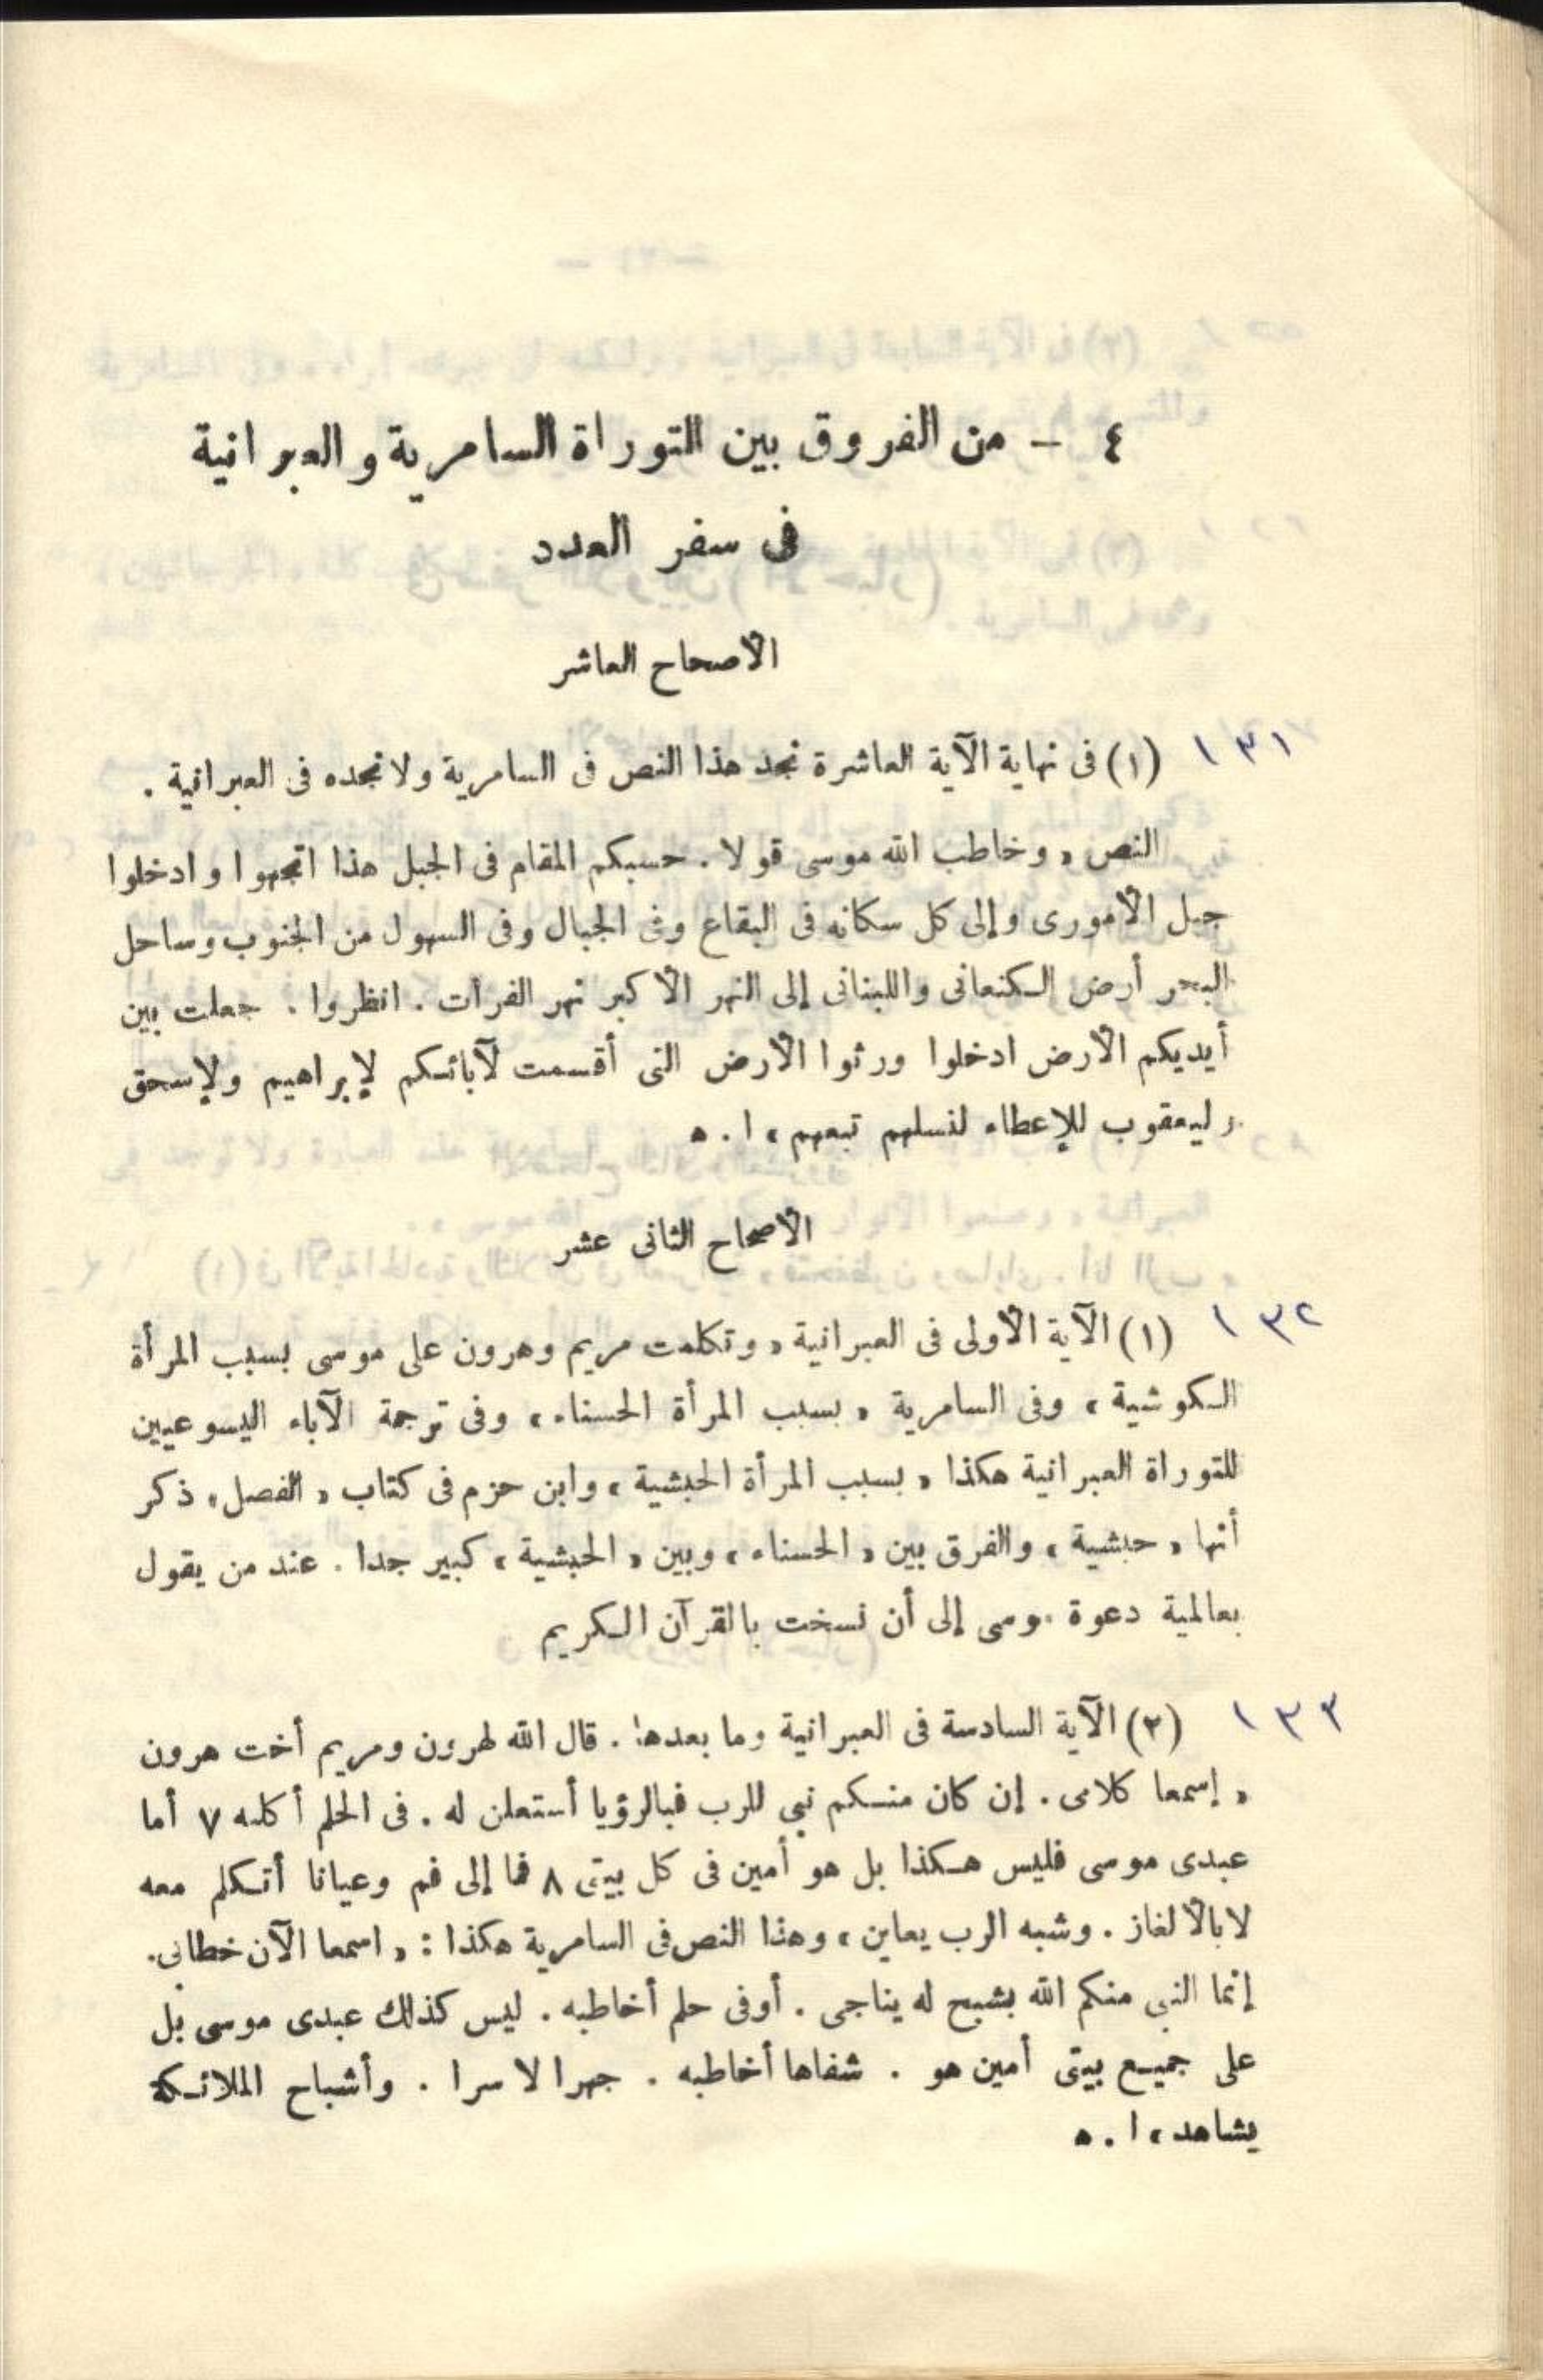 ٤ – من الفروق بين التوراة السامرية والعبرانية
فى سفر العدد
الأصحاح العاشر
١٣١ (١) فى نهاية الآية العاشرة نجد هذا النص فى السامرية ولا نجده فى العبرانية .
النص « وخاطب الله موسى قولا . حسبكم المقام فى الجبل هذا اتجهوا وادخلوا
جبل الأمورى وإلى كل سكانه فى البقاع وفى الجبال وفى السهول من الجنوب وساحل
البحر أرض الكنعانى واللبنانى إلى النهر الأكبر نهر الفرات . انظروا . جعلت بين
أيديكم الأرض ادخلوا ورثوا الأرض التى أقسمت لآبائكم لإبراهيم ولإسحق
وليعقوب للإعطاء لنسلهم تبعهم » ا . ه
الأصحاح الثانى عشر
١٣٢ (١) الآية الأولى فى العبرانية « وتكلمت مريم وهرون على موسى بسبب المرأة
الكوشية » وفى السامرية « بسبب المرأة الحسناء » وفى ترجمة الآباء اليسوعيين
للتوراة العبرانية هكذا « بسبب المرأة الحبشية » وابن حزم فى كتاب « الفصل » ذكر
أنها « حبشية » والفرق بين « الحسناء » وبين « الحبشية » كبير جدا . عند من يقول
بعالمية دعوة موسى إلى أن نسخت بالقرآن الكريم
١٣٣ (٢) الآية السادسة فى العبرانية وما بعدها . قال الله لهرون ومريم أخت هرون
« إسمعا كلامى . إن كان منكم نبى للرب فبالرؤيا أستعلن له . فى الحلم أكلمه ٧ أما
عبدى موسى فليس هكذا بل هو أمين فى كل بيتى ٨ فما إلى فم وعيانا أتكلم معه
لا بالألغاز . وشبه الرب يعاين » وهذا النص فى السامرية هكذا : « اسمعا الآن خطابى .
إنما النبى منكم الله بشبح له يناجى . أوفى حلم أخاطبه . ليس كذلك عبدى موسى بل
على جميع بيتى أمين هو . شفاها أخاطبه . جهرا لا سرا . وأشباح الملائكة
يشاهد » ا . ه